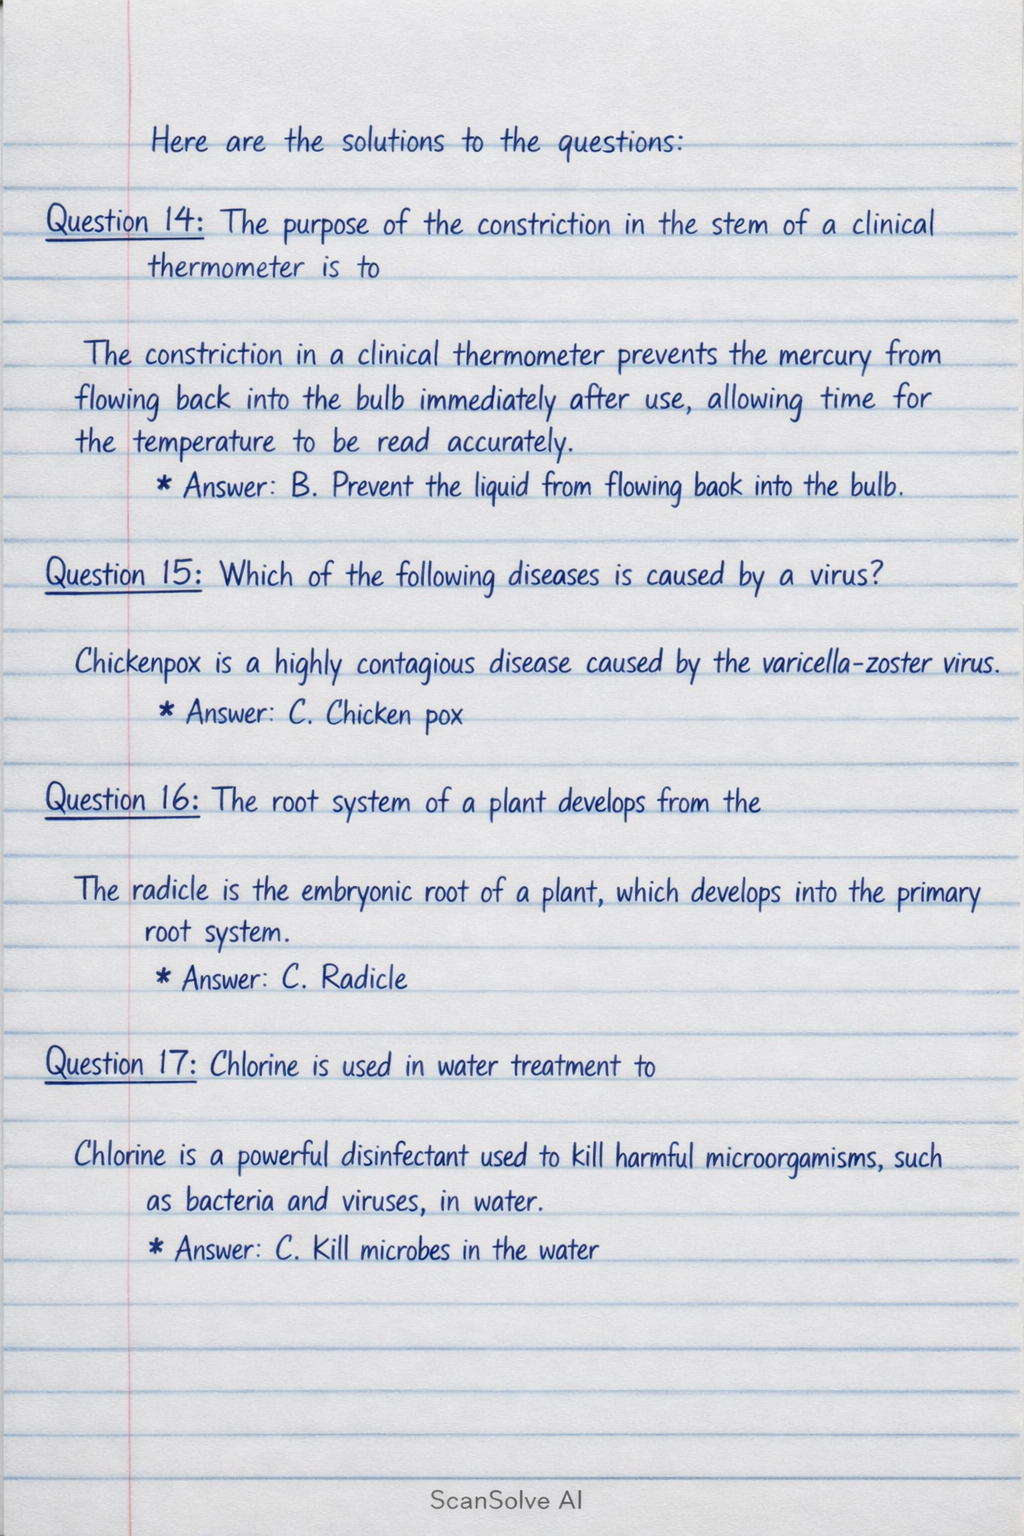 Here are the solutions to the questions:
Question 14: The purpose of the constriction in the stem of a clinical
thermometer is to
The constriction in a clinical thermometer prevents the mercury from
flowing back into the bulb immediately after use, allowing time for
the temperature to be read accurately.
* Answer: B. Prevent the liquid from flowing baok into the bulb.
Question 15: Which of the following diseases is caused by a virus?
Chickenpox is a highly contagious disease caused by the varicella-zoster virus.
* Answer: C. Chicken pox
Question 16: The root system of a plant develops from the
The radicle is the embryonic root of a plant, which develops into the primary
root system.
* Answer: C. Radicle
Question 17: Chlorine is used in water treatment to
Chlorine is a powerful disinfectant used to kill harmful microorgamisms, such
as bacteria and viruses, in water.
* Answer: C. Kill microbes in the water
ScanSolve AI